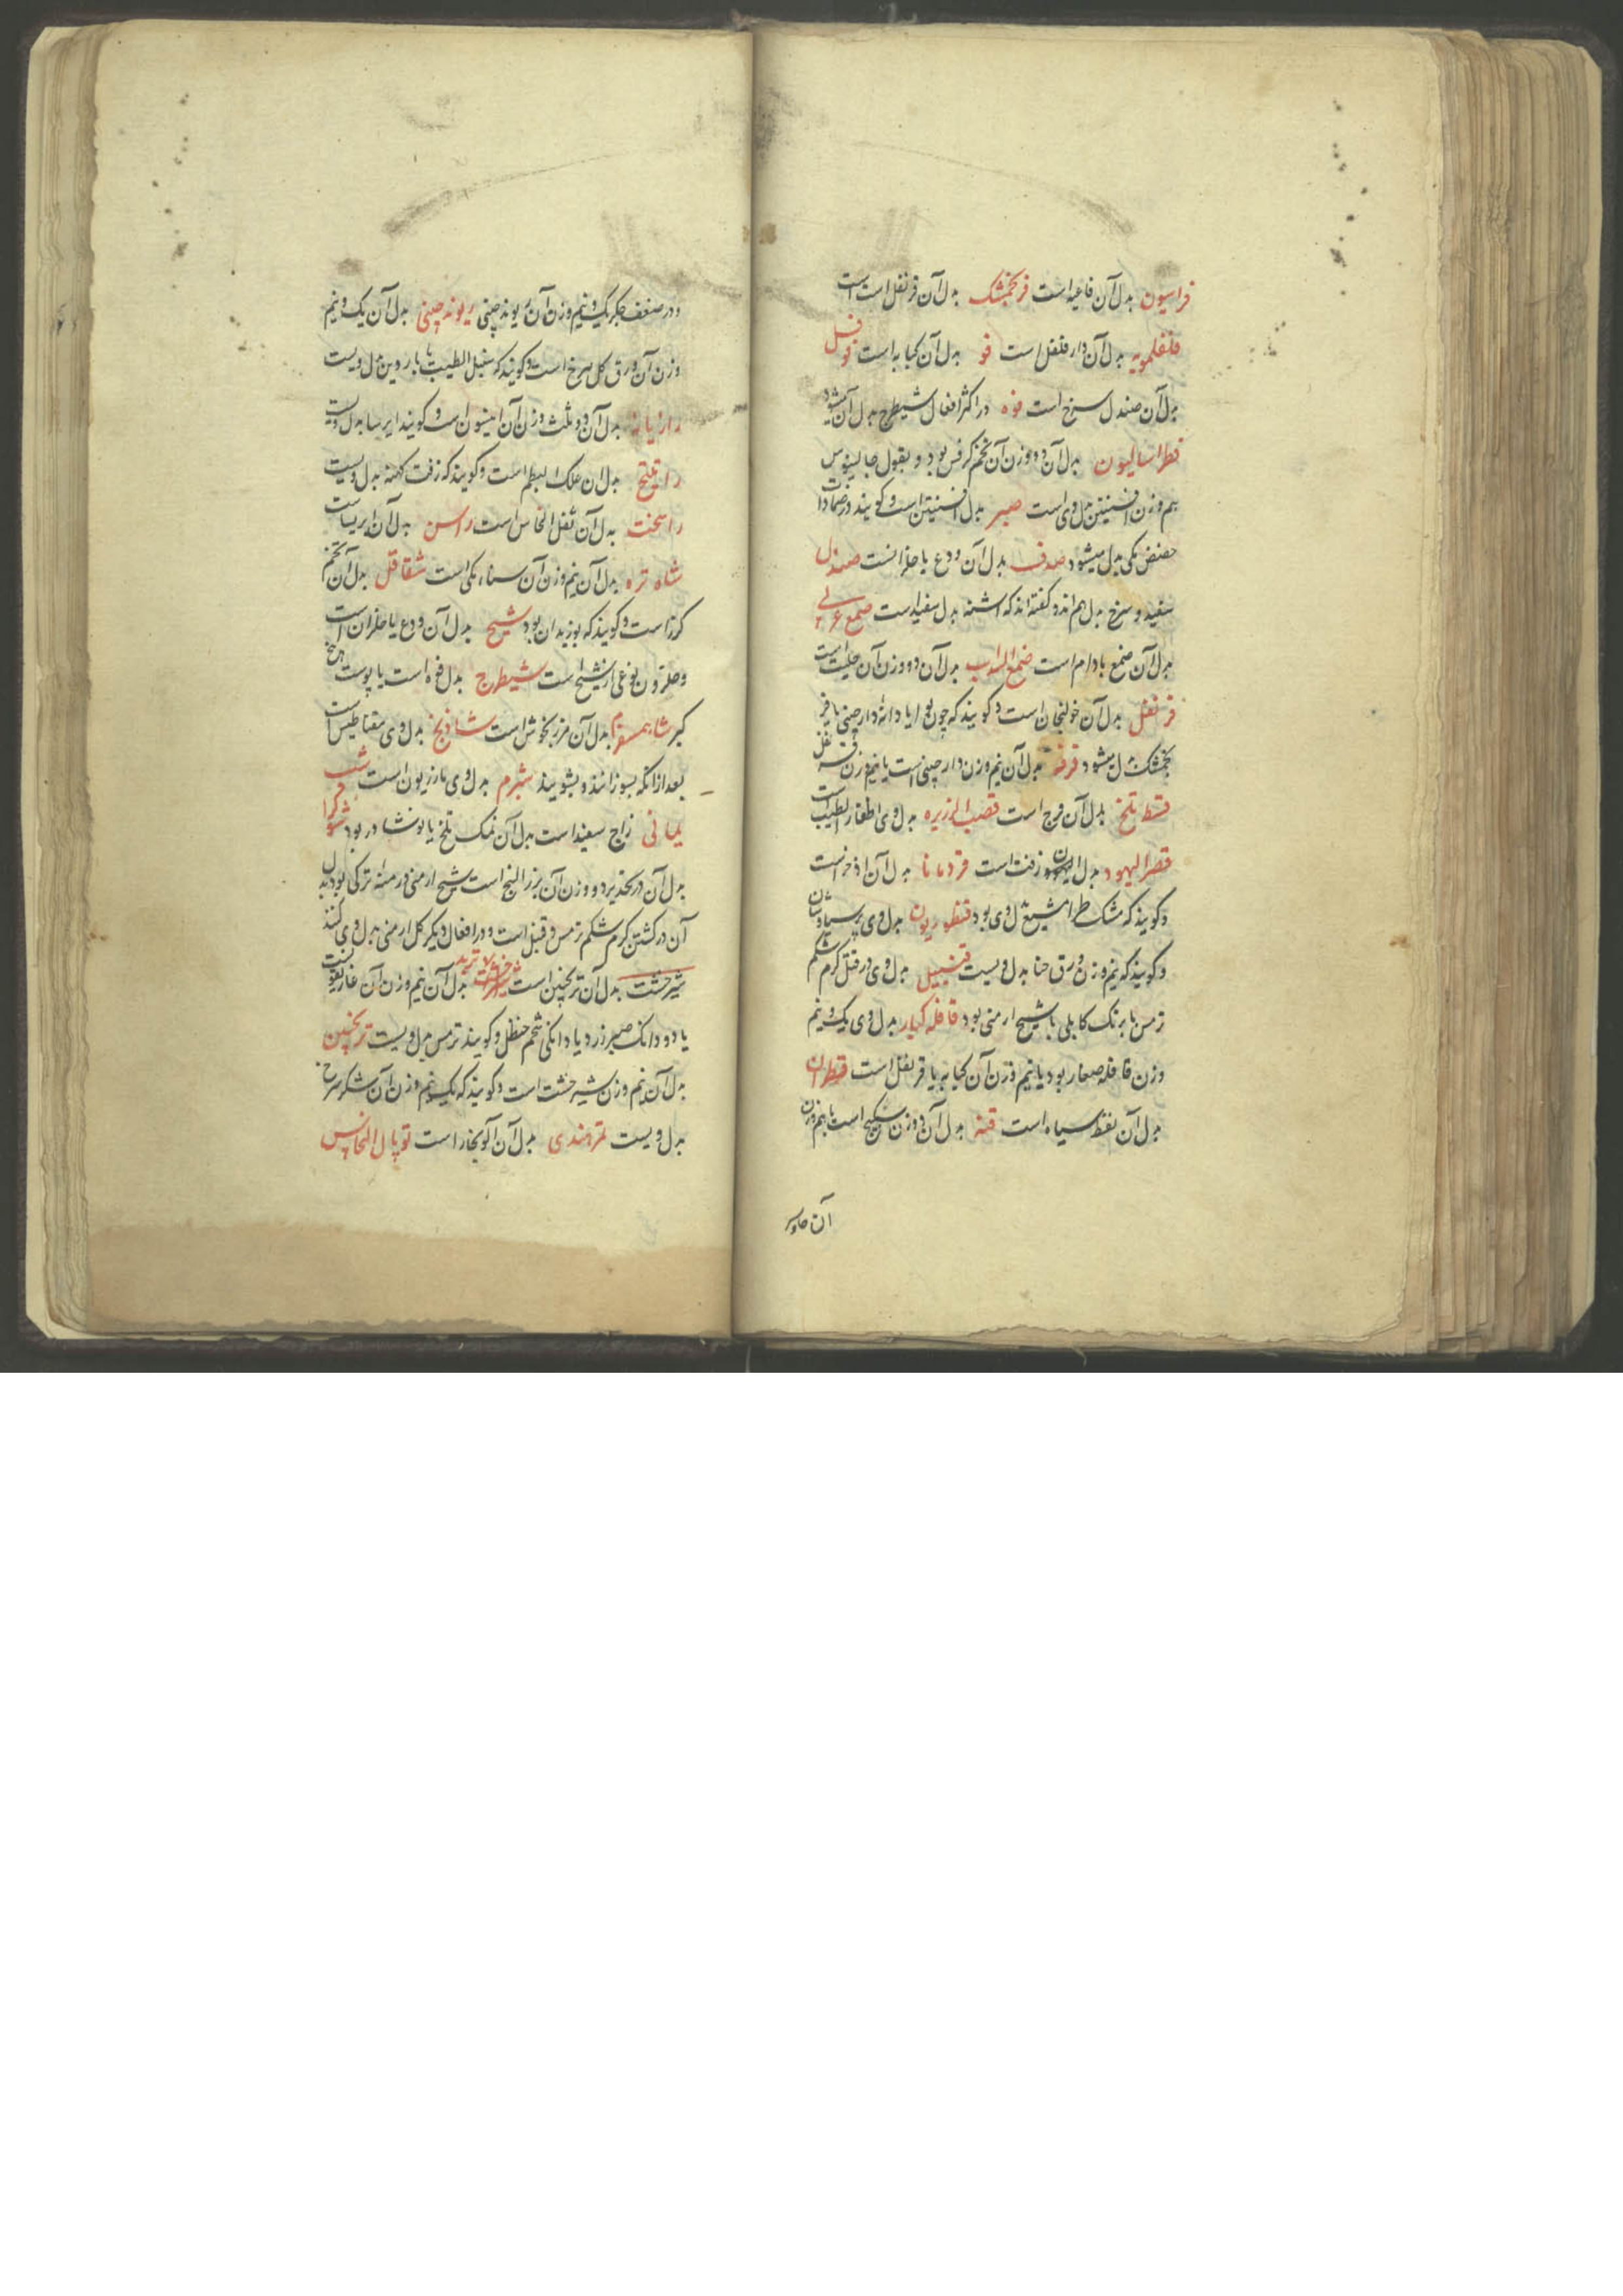 فراسیون بدل آن فاغیه است فرنجمشک بدل آن قرنفل است
فلفلمویه بدل آن دار فلفل است فو بدل آن کبابه است فوفل
بدل آن صندل سرخ است فوه در اکثر افعال شیطرج بدل آن میشود
فطراسالیون بدل آن دو وزن آن تخم کرفس بود و بقول جالینوس
هم وزن افسنتین بدل وی است صبر بدل افسنتین است و گویند در ضمادات
حضض مکی بدل میشود صدف بدل آن ودع یا حلزانست صندل
سفید و سرخ بدل هم اند و گفته اند که اشنه بدل سفید است صمغ عربی
بدل آن صمغ بادام است صمغ السداب بدل آن دو وزن آن حلتیت است
قرنفل بدل آن خولنجان است و گویند که چون بوا یا دانه دارچینی یا فر
نجمشک بدل میشود قرفه بدل آن نیم وزن دارچینی است یا نیم وزن قرنفل
قسط تلخ بدل آن وج است قصب الزریره بدل وی اظفار الطیب است
قفر الیهود بدل آن زفت است قردمانا بدل آن اذخر است
و گویند که مشک طرامشیع بدل وی بود قنطوریون بدل وی پرسیاوشان
و گویند که نیم وزن ورق حنا بدل ویست قنبیل بدل وی در قتل کرم شکم
ترمس یا برنک کابلی یا شیح ارمنی بود قاقله کبار بدل وی یک و نیم
وزن قاقله صغار بود یا نیم وزن آن کبابه یا قرنفل است قطران
بدل آن نفط سیاه است قنه بدل آن دو وزن سکبینج است یا هم وزن
آن جاوشیر
و در ضعف جگر یک و نیم وزن آن ریوند چینی ریوند چینی بدل آن یک و نیم
وزن آن ورق گل سرخ است و گویند که سنبل الطیب یا باردین بدل ویست
رازیانه بدل آن دو ثلث وزن آن انیسون است و گویند ایرسا بدل ویست
راتینج بدل آن علک البطم است و گویند که زفت کهنه بدل ویست
راسخت بدل آن ثفل النحاس است راسن بدل آن ایرساست
شاه تره بدل آن نیم وزن آن سناء مکی است شقاقل بدل آن تخم
گزر است و گویند که بوزیدان بود شیح بدل آن ودع یا حلزان است
و حلزون نوعی از شیح است شیطرج بدل فوه است یا پوست بیخ
کبر شاهسفرم بدل آن مرزنجوش است شاذنج بدل وی مقناطیس است
بعد از آنکه بسوزانند و بشویند شبرم بدل وی مازریون است شب
یمانی زاج سفید است بدل آن نمک تلخ یا نوشادر بود شوکران
بدل آن در تخدیر دو وزن آن بزر البنج است شیح ارمنی درمنه ترکی بود بدل
آن در کشتن کرم شکم ترمس و قنبیل است و در افعال دیگر گل ارمنی بدل وی کنند
شیر خشت بدل آن ترنجبین است تربد بدل آن نیم وزن آن غاریقونست
یا دو دانک صبر زرد یا دانکی شحم حنظل و گویند ترمس بدل ویست ترنجبین
بدل آن نیم وزن شیر خشت است و گویند که یک و نیم وزن آن شکر سرخ
بدل ویست تمر هندی بدل آن آلو بخارا است توبال النحاس